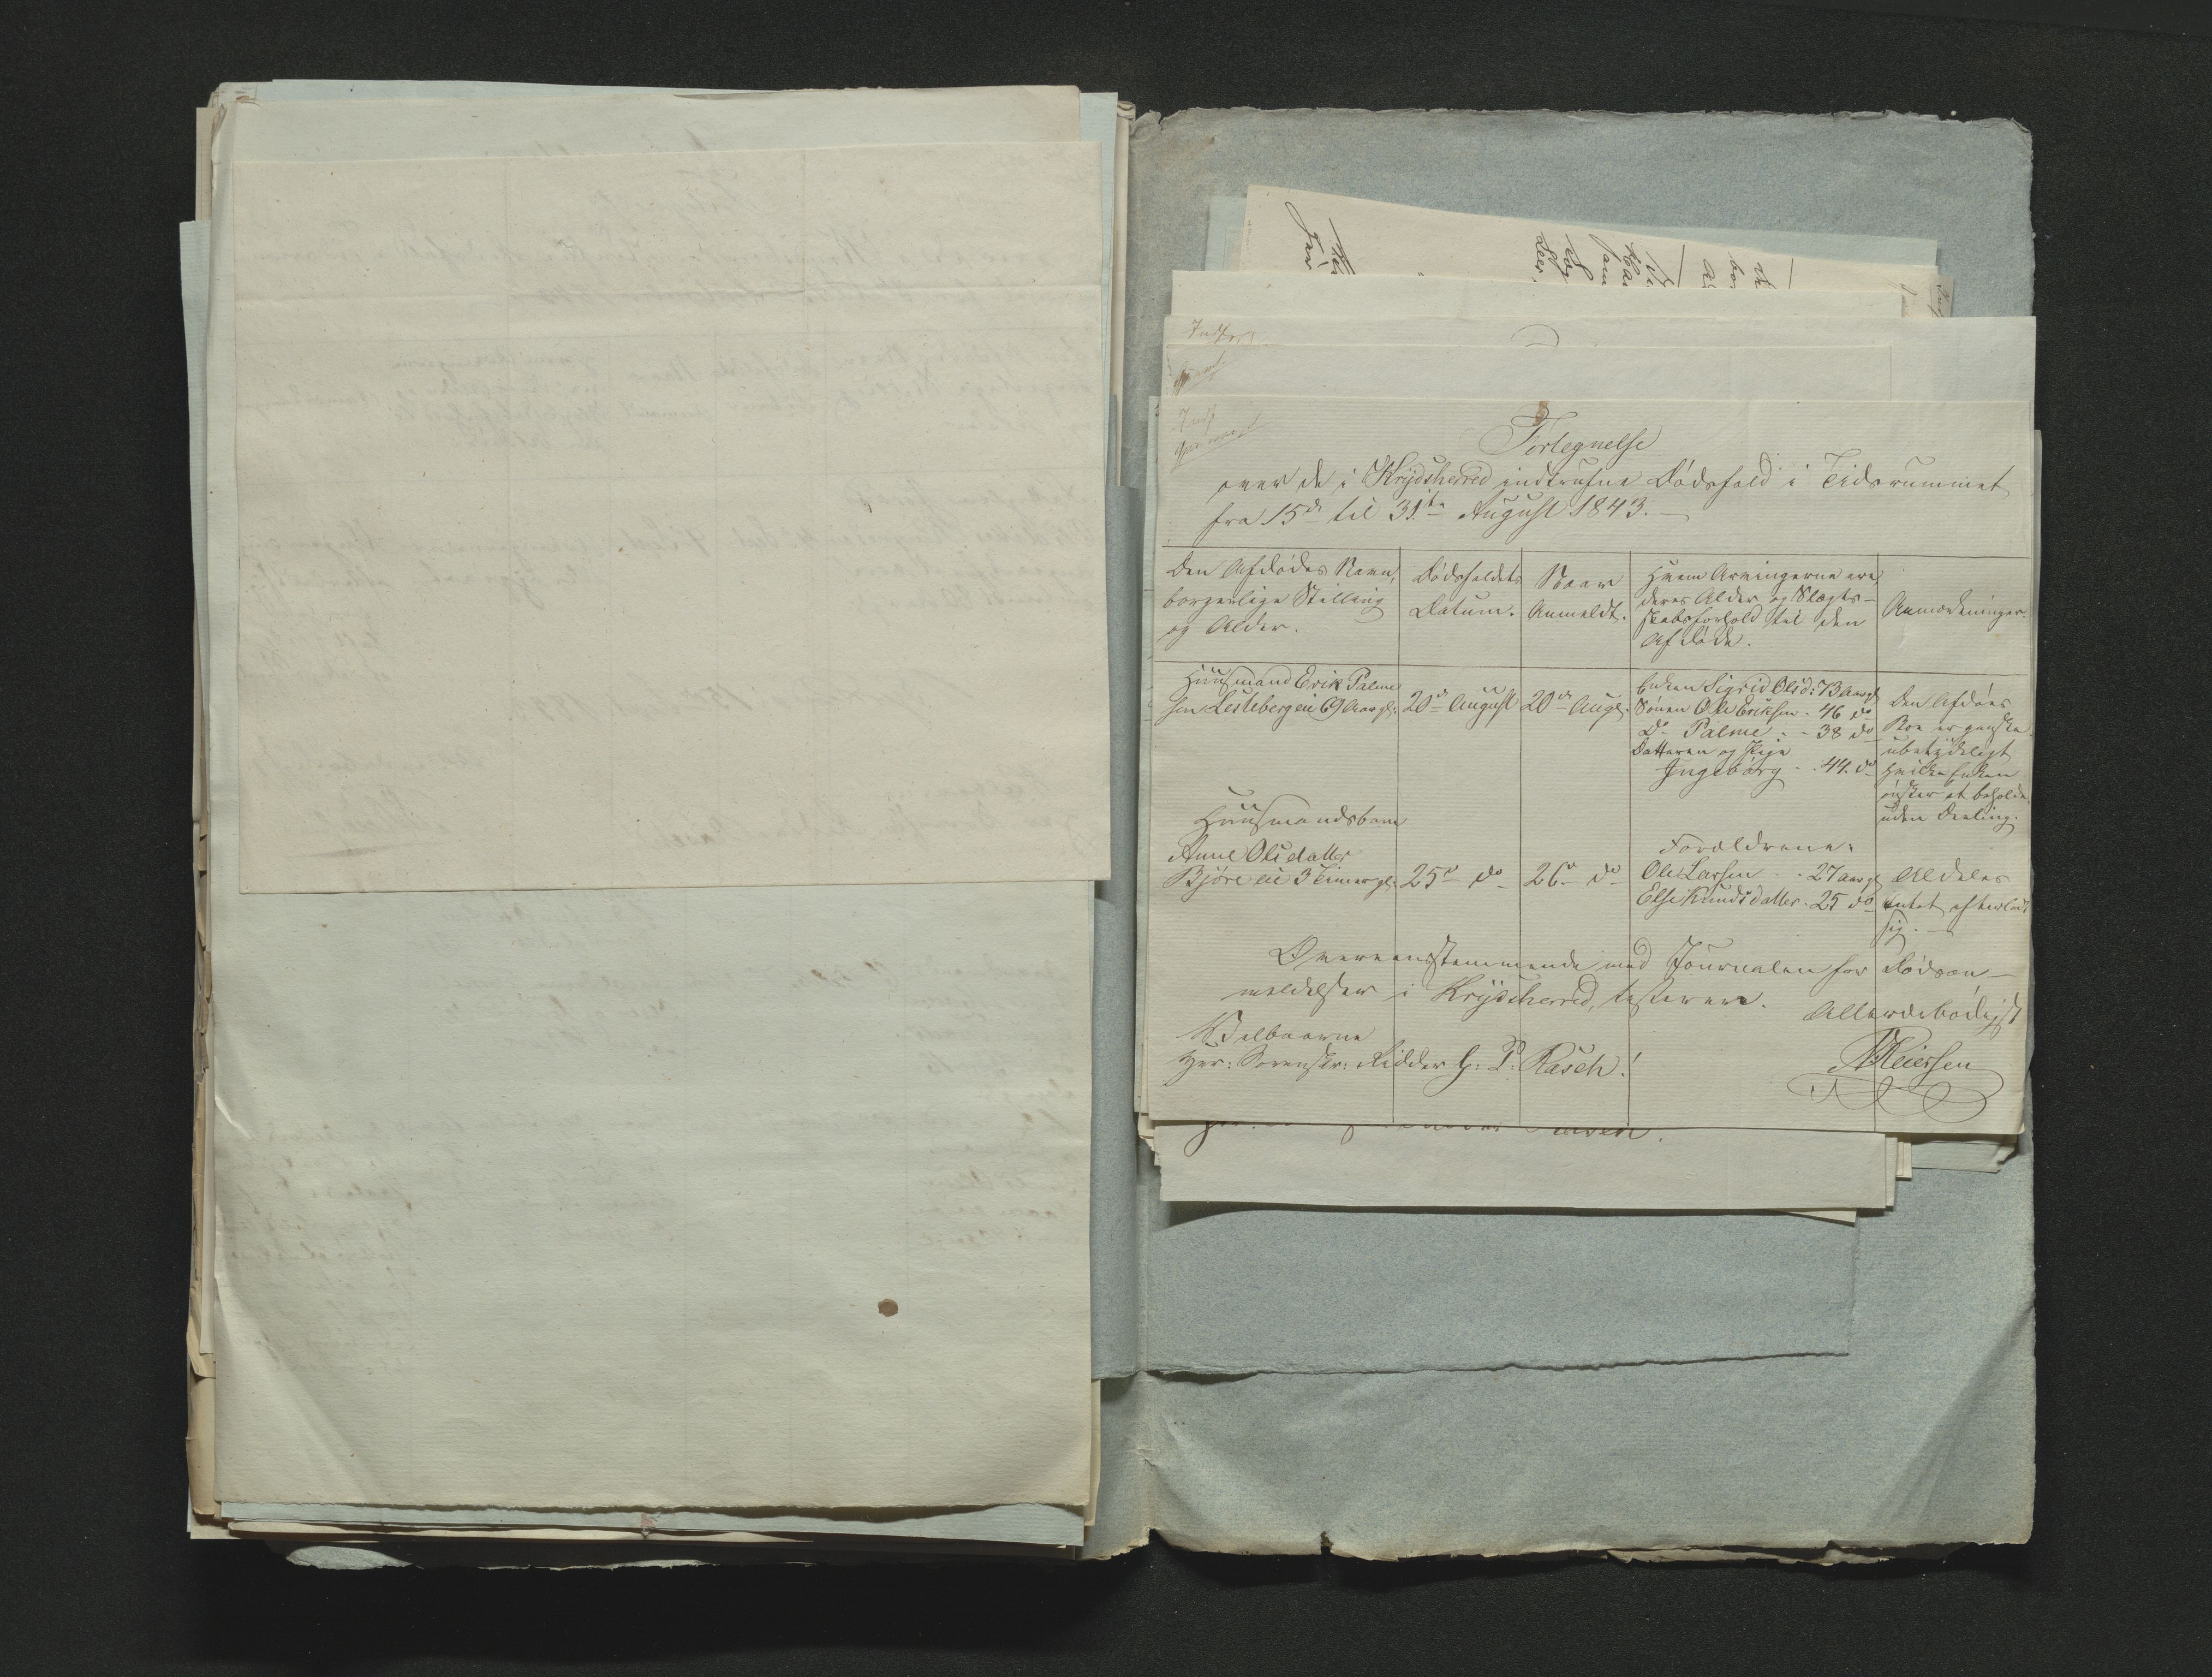 Forlegnelse
over de i Krydsherred indtrufne Dødsfald i Tidsrummet
fra 15de til 31te August 1843.
Den Afdødes Navn,
borgerlige Stilling
og Alder.
Dødsfaldets
Datum.
Naar
Anmeldt.
Hvem Arvingerne ere,
deres Alder og Slægts-
skabsforhold til den
Afdøde.
Anmærkninger.
Huusmand Erik Palme
sen Leslebergeie 69 Aar gl:
20de August
20de Augs.
Enken Sigrid Olsd: 73 Aar gl
Sønnen Ole Eriksen - 46 do
Do Palme - - 38 do
Datteren og Pige
Ingeborg - 44. do
Den Afdøes
Boe er ganske
ubetydeligt
hvilke Enken
ønsker at beholde
uden Deeling.
Huusmandsbarn
Anne Olsdatter
Bjøreeie 3 Timer gl:
25de do
26de do
Forældrene:
Ole Larsen - - 27 aar gl
Else Knudsdatter - 25 do
Aldeles
intet efterladt
sig.
Overeensstemmende med Journalen for Dødsan-
meldelser i Krydsherred, testerer.
Allerærbødigst
Velbaarne
Hr: Sorenskr: Ridder G: P: Rasch!
Reiersen